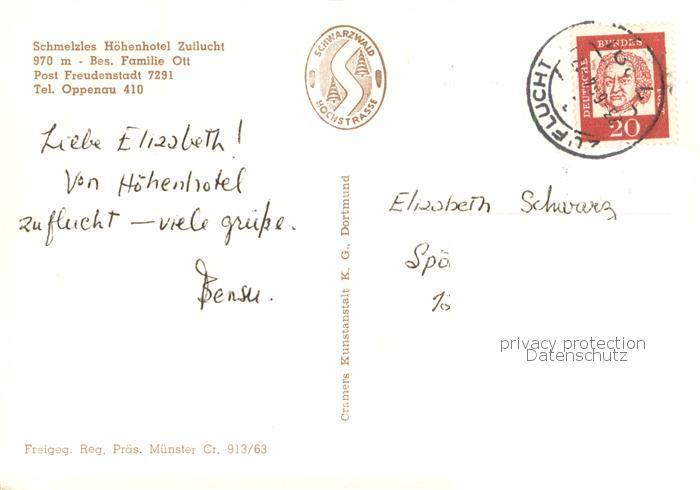 Schmelzles Höhenhotel Zuflucht
970 m - Bes. Familie Ott
Post Freudenstadt 7291
Tel. Oppenau 410
SCHWARZWALD
HOCHSTRASSE
ZUFLUCHT
DEUTSCHE
BUNDES
POST
20
Liebe Elizabeth!
Von Höhenhotel
zuflucht — viele grüße.
Bensu.
Cramers Kunstanstalt K. G., Dortmund
Elizabeth Schwarz
Spö
privacy protection
Datenschutz
Freigeg. Reg. Präs. Münster Cr. 913/63